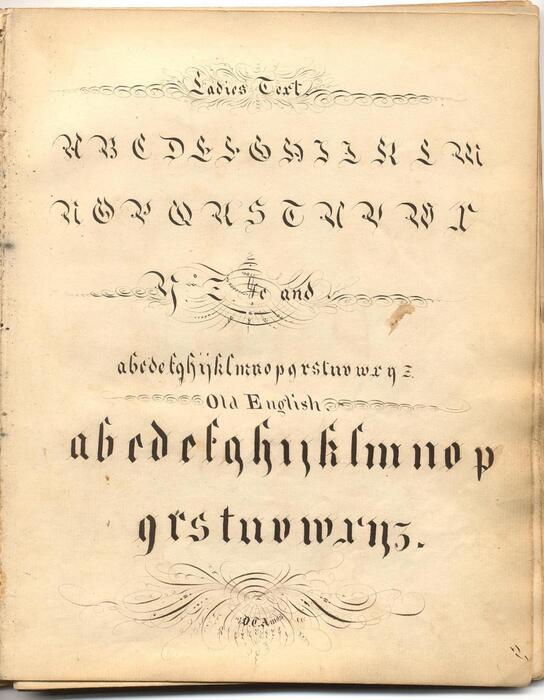 Ladies Text
A B C D E F G H I J K L M
N O P Q R S T U V W X
Y. Z. &c and.
abcdefghijklmnopqrstuvwxyz.
Old English.
abcdefghijklmnop
qrstuvwxyz.